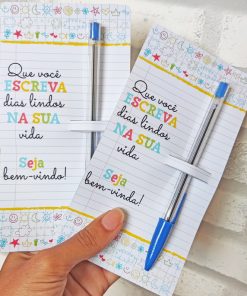 Que você
ESCREVA
dias lindos
NA SUA
vida
Seja
bem-vindo!
Que você
ESCREVA
dias lindos
NA SUA
vida
Seja
bem-vinda!